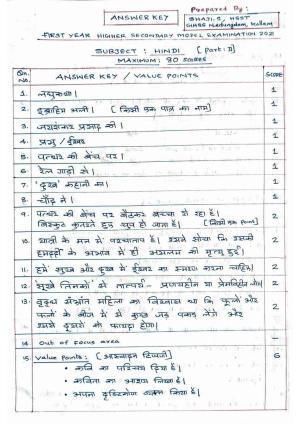 ANSWER KEY
Prepared By:
SHAJI.S, HSST
GHSS Kollam
FIRST YEAR HIGHER SECONDARY MODEL EXAMINATION 2021
SUBJECT : HINDI [Part: II]
MAXIMUM: 80 SCORES
Qn. No. ANSWER KEY / VALUE POINTS SCORE
1. लघुकथा। 1
2. इब्राहिम अली। [किसी एक पात्र का नाम] 1
3. जयशंकर प्रसाद की। 1
4. प्रभु / ईश्वर 1
5. पत्थर की बेंच पर। 1
6. रेल गाड़ी से। 1
7. 'दुख' कहानी का। 1
8. चाँद ने। 1
9. पत्थर की बेंच पर बैठकर बच्चा रो रहा है।
बिस्कुट कुतरते हुए चुप हो जाता है। 2
10. यात्री के मन में पश्चाताप है। उसने सोचा कि उसकी
हमदर्दी के अभाव में ही असलम की मृत्यु हुई। 2
11. हमें सुख और दुख में ईश्वर का स्मरण करना चाहिए। 2
12. 'सूखे तिनकों' से तात्पर्य - 2
13. वृद्ध संभ्रांत महिला का विश्वास था कि फूलों और
फलों के बीज में से कुछ जड़ पकड़ लेंगे और
उनसे दूसरों को फायदा होगा। 2
14. Out of focus area
15. Value Points: [आस्वादन टिप्पणी] 6
• कवि का परिचय दिया है।
• कविता का आशय लिखा है।
• अपना दृष्टिकोण व्यक्त किया है।